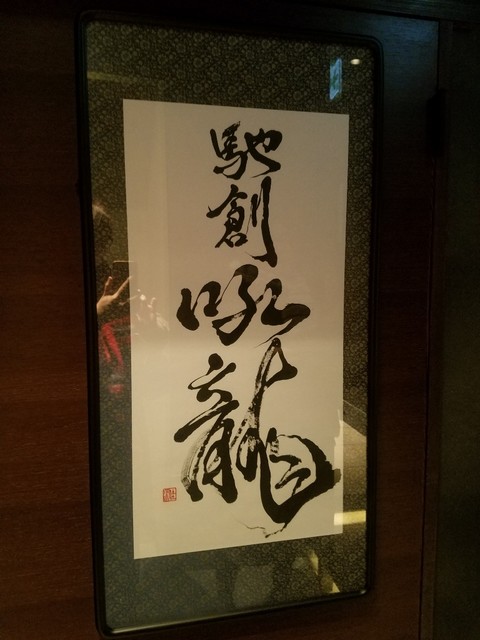 馳創
吼龍